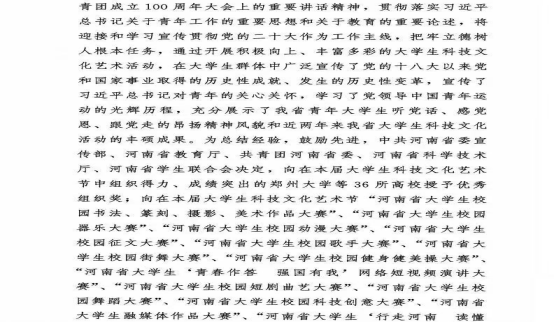 青团成立 100 周年大会上的重要讲话精神，贯彻落实习近平
总书记关于青年工作的重要思想和关于教育的重要论述，将
迎接和学习宣传贯彻党的二十大作为工作主线，把牢立德树
人根本任务，通过开展积极向上、丰富多彩的大学生科技文
化艺术活动，在大学生群体中广泛宣传了党的十八大以来党
和国家事业取得的历史性成就、发生的历史性变革，宣传了
习近平总书记对青年的关心关怀，学习了党领导中国青年运
动的光辉历程，充分展示了我省青年大学生听党话、感党
恩、跟党走的昂扬精神风貌和近两年来我省大学生科技文化
活动的丰硕成果。为总结经验，鼓励先进，中共河南省委宣
传部、河南省教育厅、共青团河南省委、河南省科学技术
厅、河南省学生联合会决定，向在本届大学生科技文化艺术
节中组织得力、成绩突出的郑州大学等 36 所高校授予优秀
组织奖；向在本届大学生科技文化艺术节“河南省大学生校
园书法、篆刻、摄影、美术作品大赛”、“河南省大学生校园
器乐大赛”、“河南省大学生校园动漫大赛”、“河南省大学生
校园征文大赛”、“河南省大学生校园歌手大赛”、“河南省大
学生校园街舞大赛”、“河南省大学生校园健身健美操大赛”、
“河南省大学生‘青春作答 强国有我’网络短视频演讲大
赛”、“河南省大学生校园短剧曲艺大赛”、“河南省大学生校
园舞蹈大赛”、“河南省大学生校园科技创意大赛”、“河南省
大学生融媒体作品大赛”、“河南省大学生‘行走河南 读懂